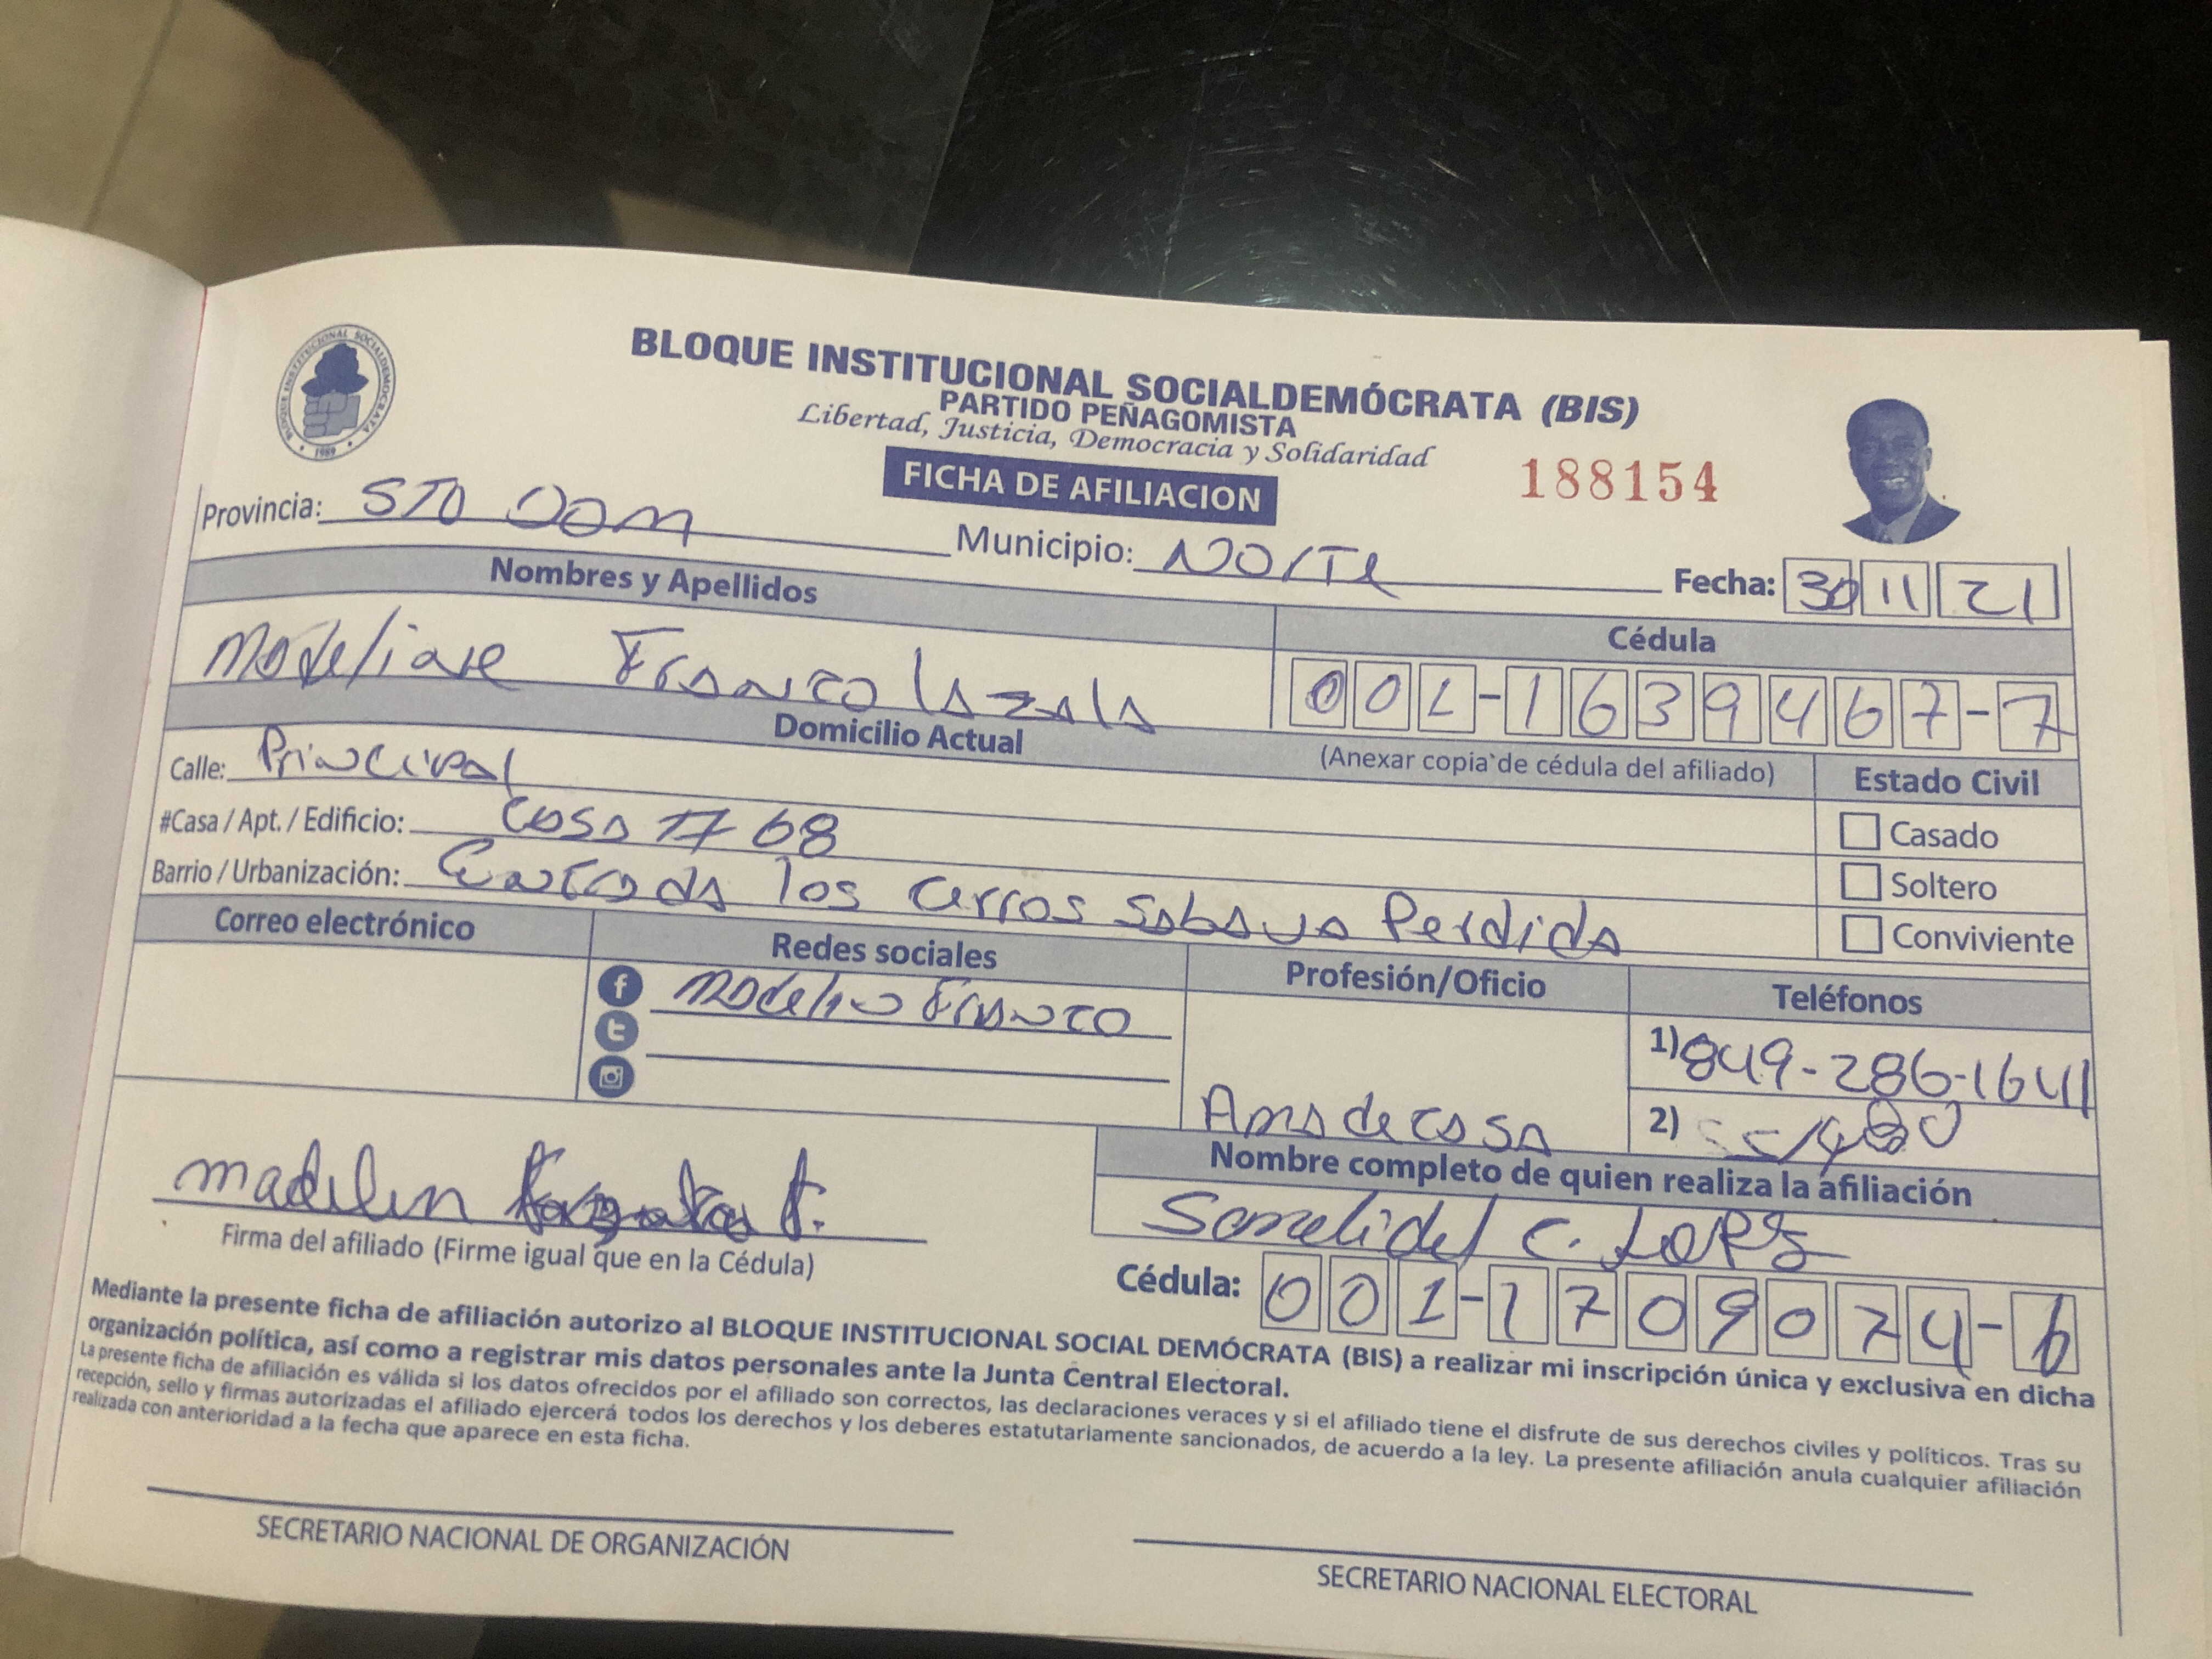 BLOQUE INSTITUCIONAL SOCIALDEMOCRATA
1989
BLOQUE INSTITUCIONAL SOCIALDEMÓCRATA (BIS)
PARTIDO PEÑAGOMISTA
Libertad, Justicia, Democracia y Solidaridad
FICHA DE AFILIACION
188154
Provincia: STO DOM Municipio: NOrTe Fecha: 30 11 21
Nombres y Apellidos Cédula
Franco 001-1639467-7
Domicilio Actual (Anexar copia de cédula del afiliado) Estado Civil
Calle: Principal
#Casa / Apt. / Edificio: casa # 68 Casado
Barrio / Urbanización: Entrada los cerros sabana Perdida Soltero
Conviviente
Correo electrónico Redes sociales Profesión/Oficio Teléfonos
f Franco 1) 849-286-1641
Ama de casa 2)
Nombre completo de quien realiza la afiliación
madelin
C.
Firma del afiliado (Firme igual que en la Cédula)
Cédula: 001-1709074-6
Mediante la presente ficha de afiliación autorizo al BLOQUE INSTITUCIONAL SOCIAL DEMÓCRATA (BIS) a realizar mi inscripción única y exclusiva en dicha
organización política, así como a registrar mis datos personales ante la Junta Central Electoral.
La presente ficha de afiliación es válida si los datos ofrecidos por el afiliado son correctos, las declaraciones veraces y si el afiliado tiene el disfrute de sus derechos civiles y políticos. Tras su
recepción, sello y firmas autorizadas el afiliado ejercerá todos los derechos y los deberes estatutariamente sancionados, de acuerdo a la ley. La presente afiliación anula cualquier afiliación
realizada con anterioridad a la fecha que aparece en esta ficha.
SECRETARIO NACIONAL DE ORGANIZACIÓN
SECRETARIO NACIONAL ELECTORAL